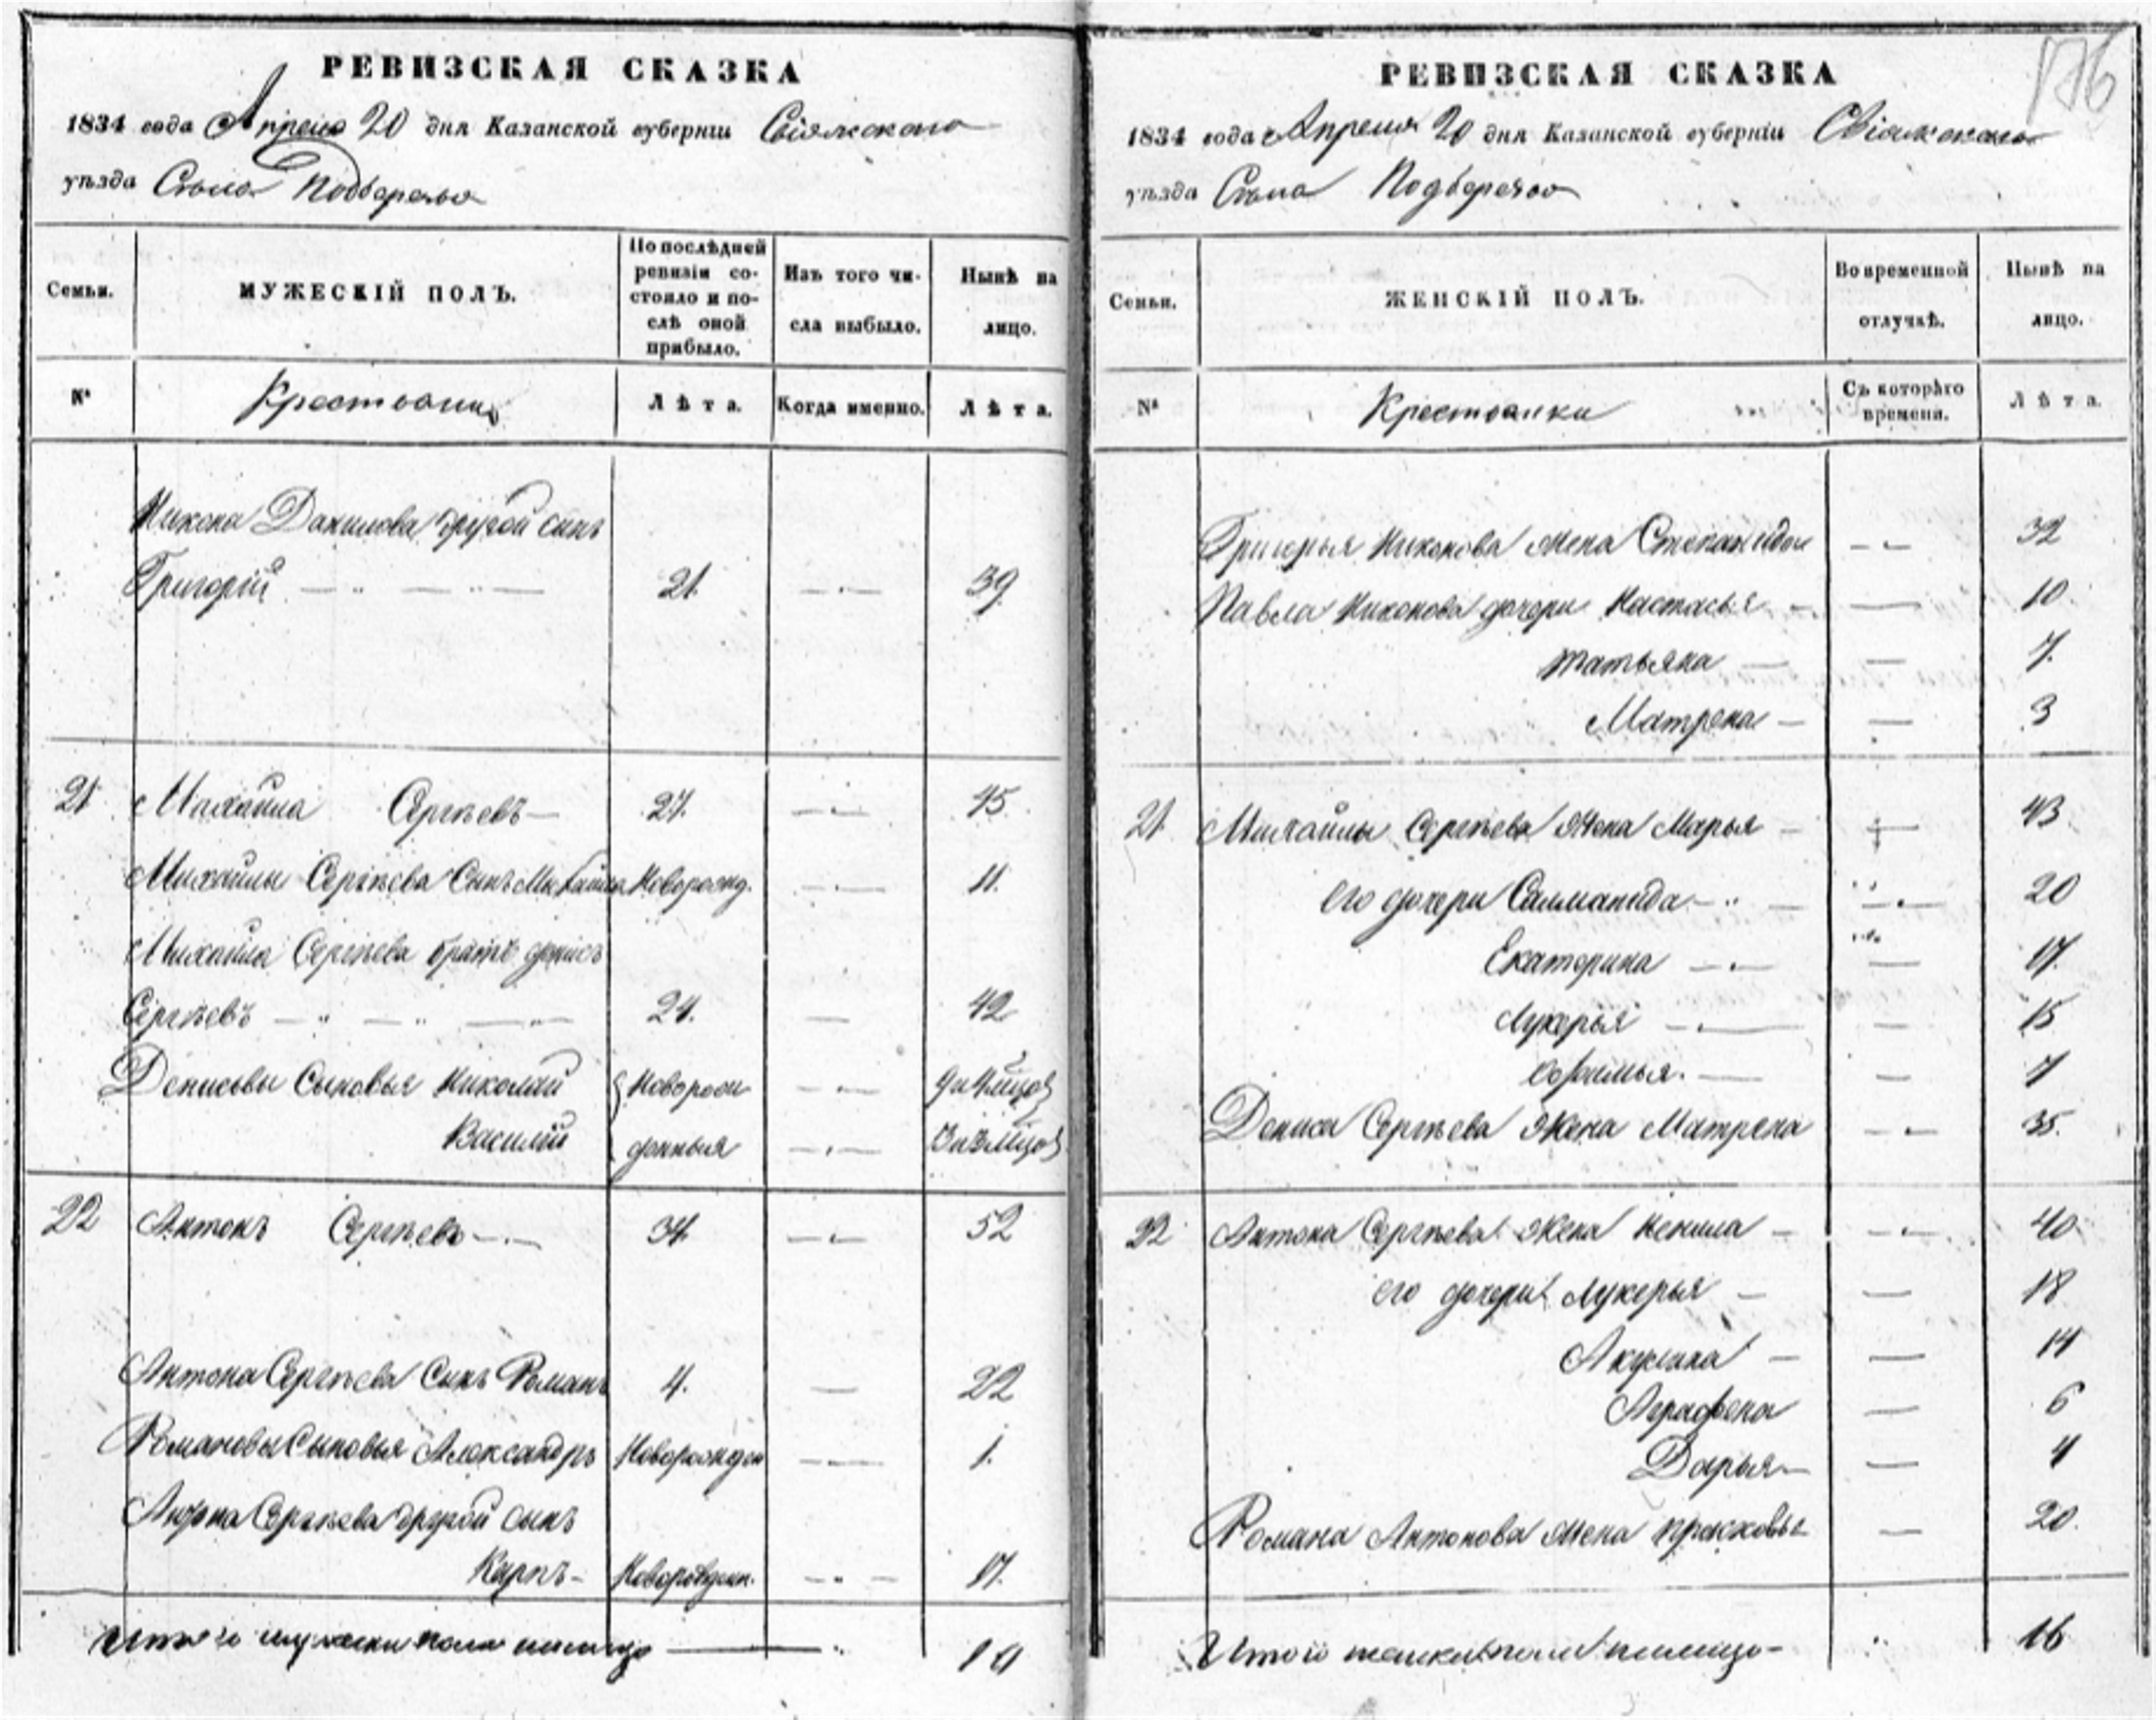 РЕВИЗСКАЯ СКАЗКА
1834 года Апреля 20 дня Казанской губернiи Свiяжскаго
уѣзда Села Подберезья
Семьи.
МУЖЕСКIЙ ПОЛЪ.
По послѣдней ревизiи состояло и послѣ оной прибыло.
Изъ того числа выбыло.
Нынѣ на лицо.
№
Крестьяне
Лѣта.
Когда именно.
Лѣта.
Никона Данилова другой сынъ
Григорiй 21. 39.
21 Михайла Сергѣевъ 27. 45
Михайлы Сергѣева Сынъ Михайла Новорожд. 11.
Михайла Сергѣева братъ Денисъ
Сергѣевъ 24. 42
Денисовы Сыновья Николай Новорож
Василiй денныя
22 Антонъ Сергѣевъ 34. 52
Антона Сергѣева Сынъ Романъ 4. 22
Романовы Сыновья Александръ Новорожден 1.
Антона Сергѣева другой сынъ
Карпъ Новорожден. 17.
Итого мужеска пола налицо 10
РЕВИЗСКАЯ СКАЗКА
176
1834 года Апреля 20 дня Казанской губернiи Свiяжскаго
уѣзда Села Подберезья
Семьи.
ЖЕНСКIЙ ПОЛЪ.
Во временной отлучкѣ.
Нынѣ на лицо.
№
Крестьянки
Съ котораго времени.
Лѣта.
Григорья Никонова жена Степанида 32
Павла Никонова дочери Настасья 10
Татьяна 7.
Матрена 3
21. Михайлы Сергѣева Жена Марья 43
его дочери 20
Екатерина 17.
Лукерья 15
7
Дениса Сергѣева Жена Матрена 35.
22 Антона Сергѣева Жена Ненила 40
его дочери Лукерья 18
Акулина 14
Аграфена 6
Дарья 4
Романа Антонова жена Прасковья 20.
Итого женска пола налицо 16